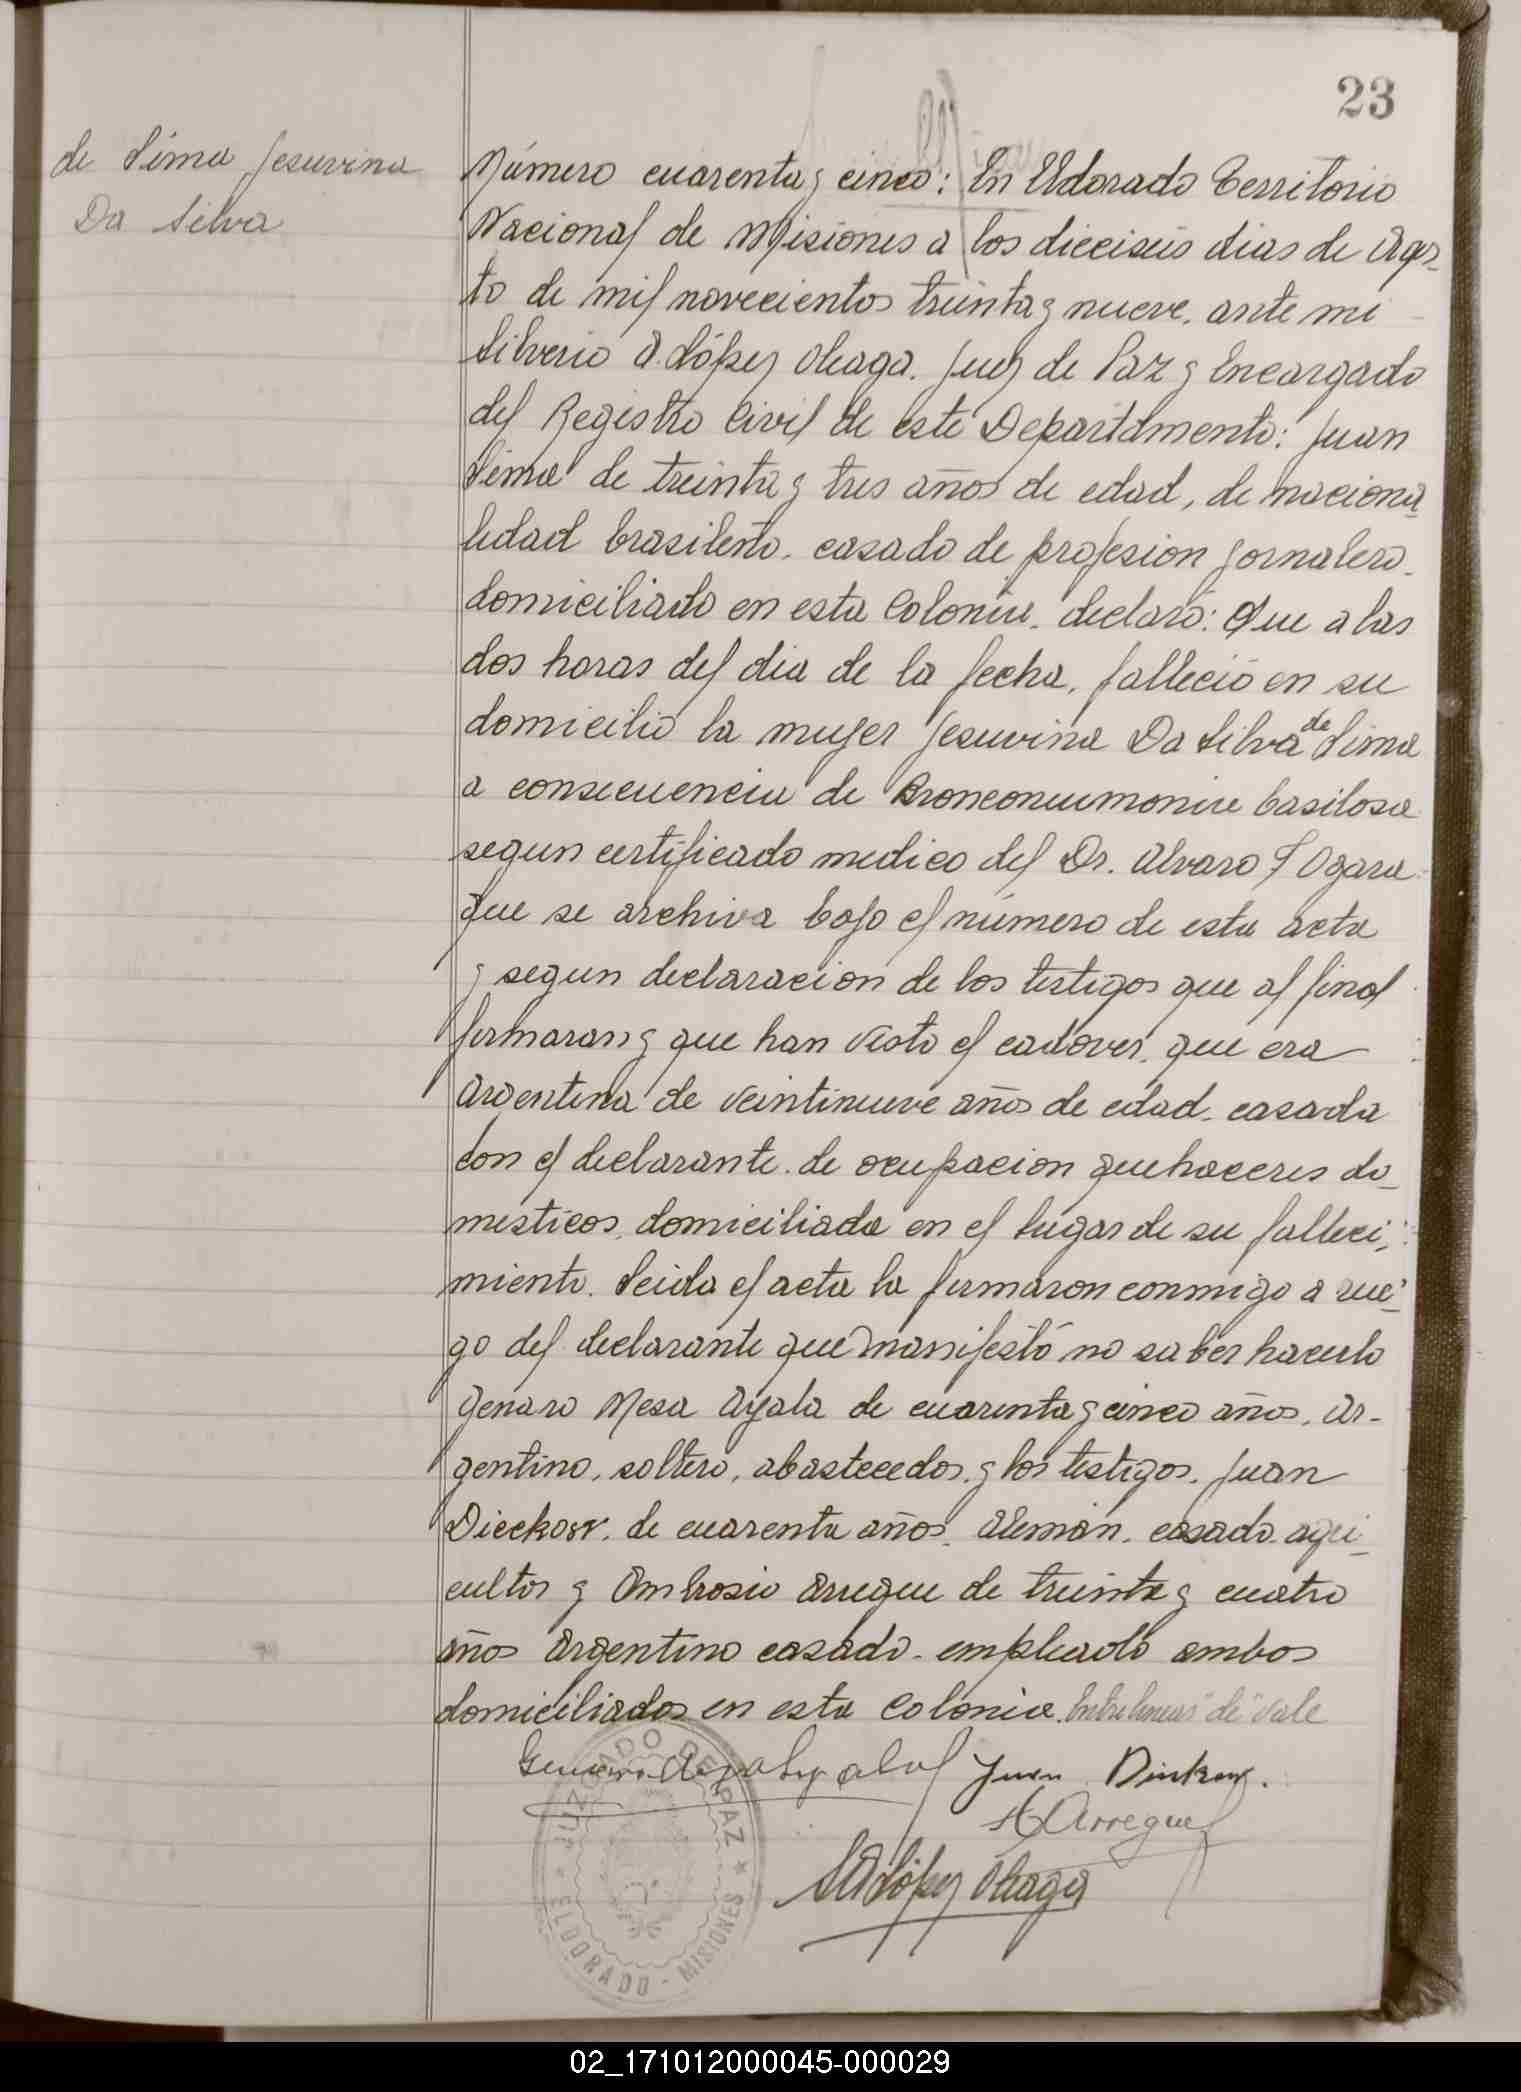 23
de Lima Jesuvina
Da Silva
Número cuarenta y cinco: En Eldorado Territorio
Nacional de Misiones a los dieciseis dias de Agos-
to de mil novecientos treinta y nueve. ante mi
Silverio A. López Oleaga. Juez de Paz y Encargado
del Registro Civil de este Departamento: Juan
Lima de treinta y tres años de edad, de naciona
lidad brasileño. casado de profesion jornalero.
domiciliado en esta Colonia. declaró: Que a las
dos horas del dia de la fecha, falleció en su
domicilio la mujer Jesuvina Da Silva de Lima
a consecuencia de Bronconeumonia basilosa
segun certificado medico del Dr. Alvaro F Ogara
que se archiva bajo el número de esta acta
y segun declaracion de los testigos que al final
firmaran y que han visto el cadover. que era
Argentina de veintinueve años de edad. casada
con el declarante. de ocupacion quehaceres do-
mesticos, domiciliada en el lugar de su falleci-
miento. Leida el acta la firmaron conmigo a rue-
go del declarante que manifestó no saber hacerlo
Genaro Mesa Ayala de cuarenta y cinco años, Ar-
gentino, soltero, abastecedor. y los testigos. Juan
de cuarenta años. Alemán. casado. agri-
cultor y Ambrosio Arregue de treinta y cuatro
años Argentino casado. empleado ambos
domiciliados en esta Colonia. Entrelineas "de" vale
Juan
A Arregue
SA López Oleaga
JUZGADO DE PAZ
ELDORADO - MISIONES
02_171012000045-000029